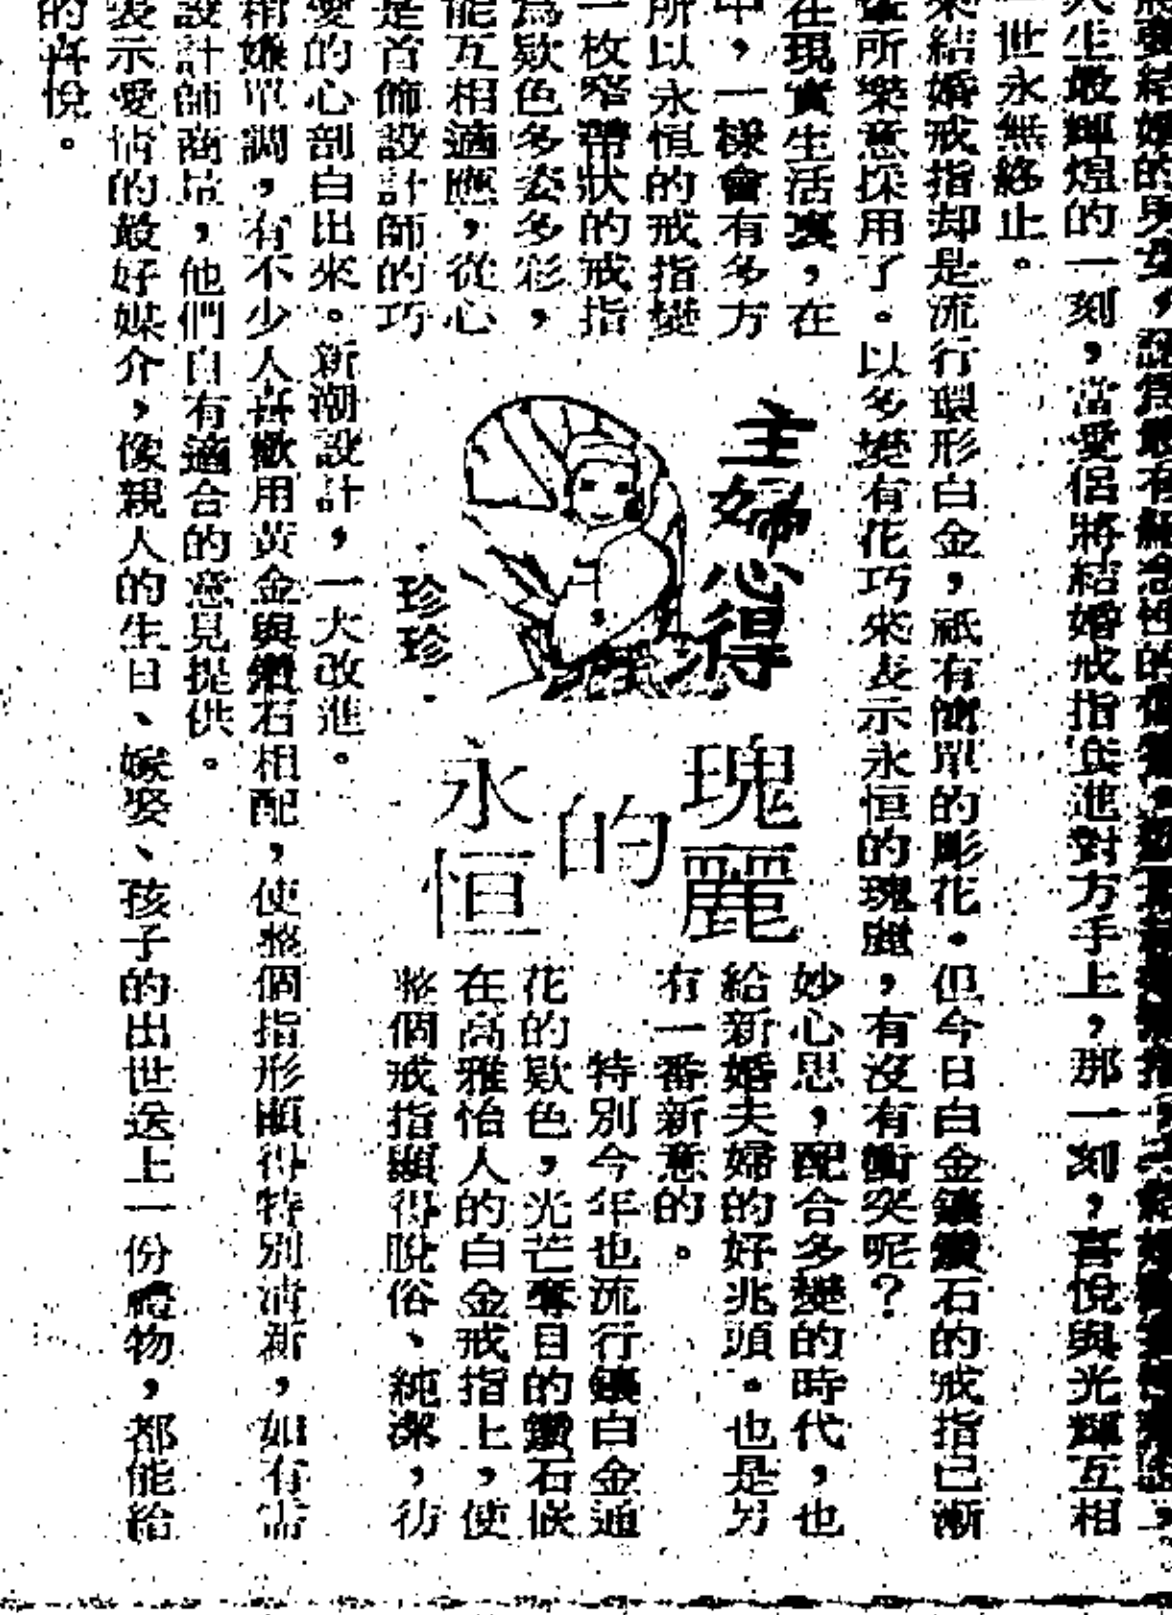 人生最輝煌的一刻，當愛侶將結婚戒指套進對方手上，那一刻，喜悅與光輝互相
世永無終止。
來結婚戒指却是流行環形白金，祇有簡單的彫花。但今日白金鑲鑽石的戒指已漸
所樂意採用了。以多變有花巧來表示永恒的瑰麗，有沒有衝突呢？
在現實生活裏，在
中，一樣會有多方
所以永恒的戒指變
一枚窄帶狀的戒指
為欵色多姿多彩，
能互相適應，從心
是首飾設計師的巧
主婦心得
珍珍
瑰麗
的
永恒
妙心思，配合多變的時代，也
給新婚夫婦的好兆頭。也是另
有一番新意的。
特別今年也流行鑲白金通
花的欵色，光芒奪目的鑽石嵌
在高雅怡人的白金戒指上，使
整個戒指顯得脫俗、純潔，彷
愛的心剖白出來。新潮設計，一大改進。
稍嫌單調，有不少人喜歡用黃金與鑽石相配，使整個指形顯得特別清新，如有需
設計師商量，他們自有適合的意見提供。
表示愛情的最好媒介，像親人的生日、嫁娶、孩子的出世送上一份禮物，都能給
的喜悅。